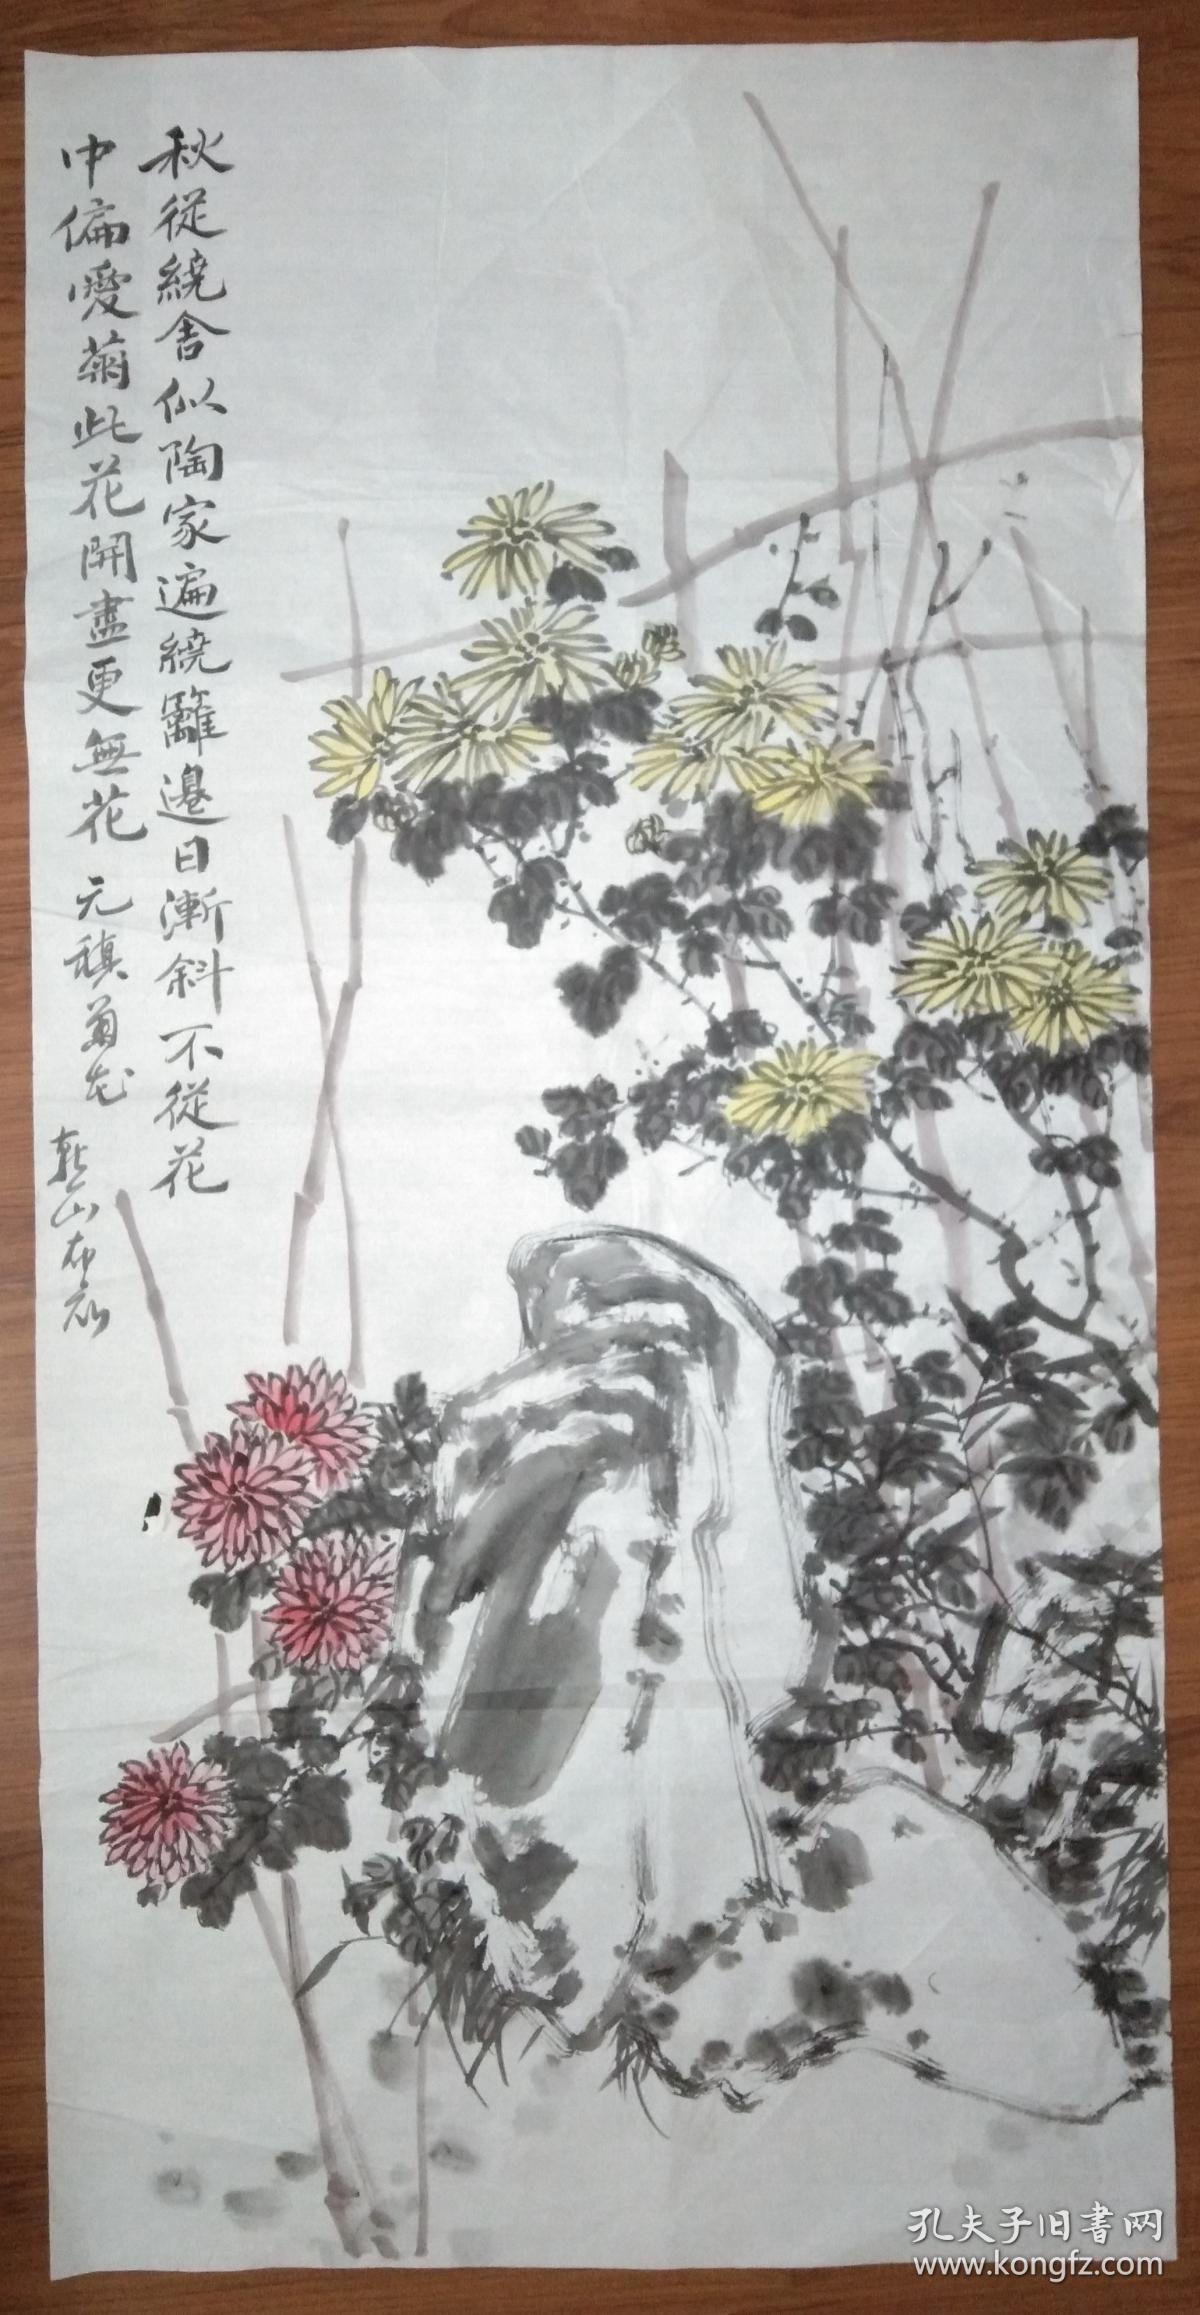 秋從繞舍似陶家遍繞籬邊日漸斜不從花
中偏愛菊此花開盡更無花 元稹菊花
山布衣
孔夫子旧書网
www.kongfz.com